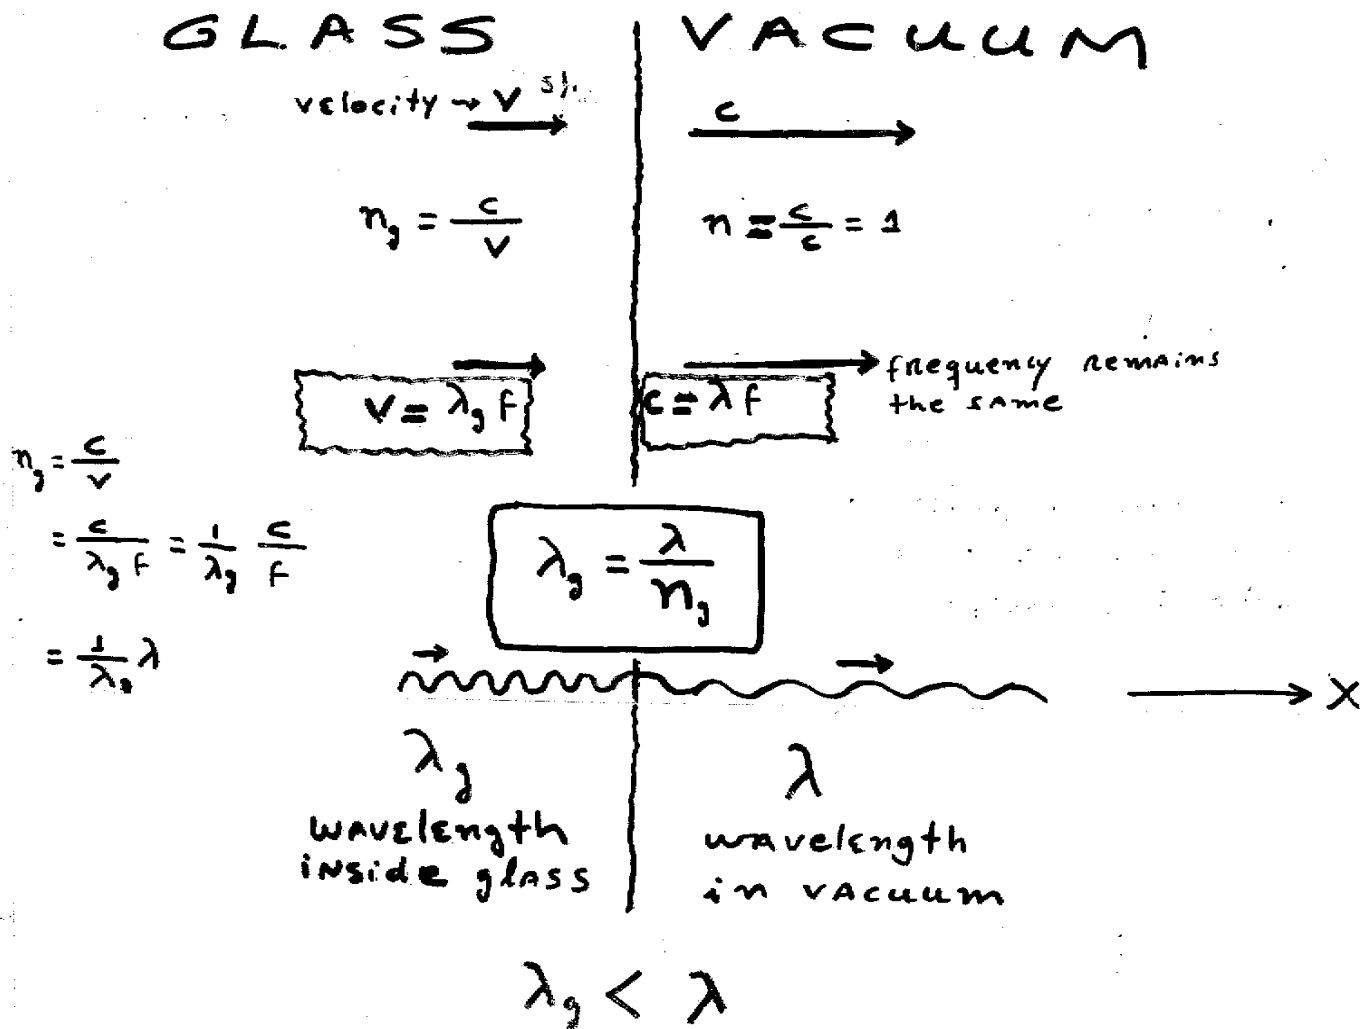 GLASS VACUUM
velocity → v
c
n_g = c/v
n = c/c = 1
v = λ_g f
c = λ f
frequency remains
the same
n_g = c/v
= c/(λ_g f) = 1/λ_g c/f
= 1/λ_g λ
λ_g = λ/n_g
X
λ_g
wavelength
inside glass
λ
wavelength
in vacuum
λ_g < λ